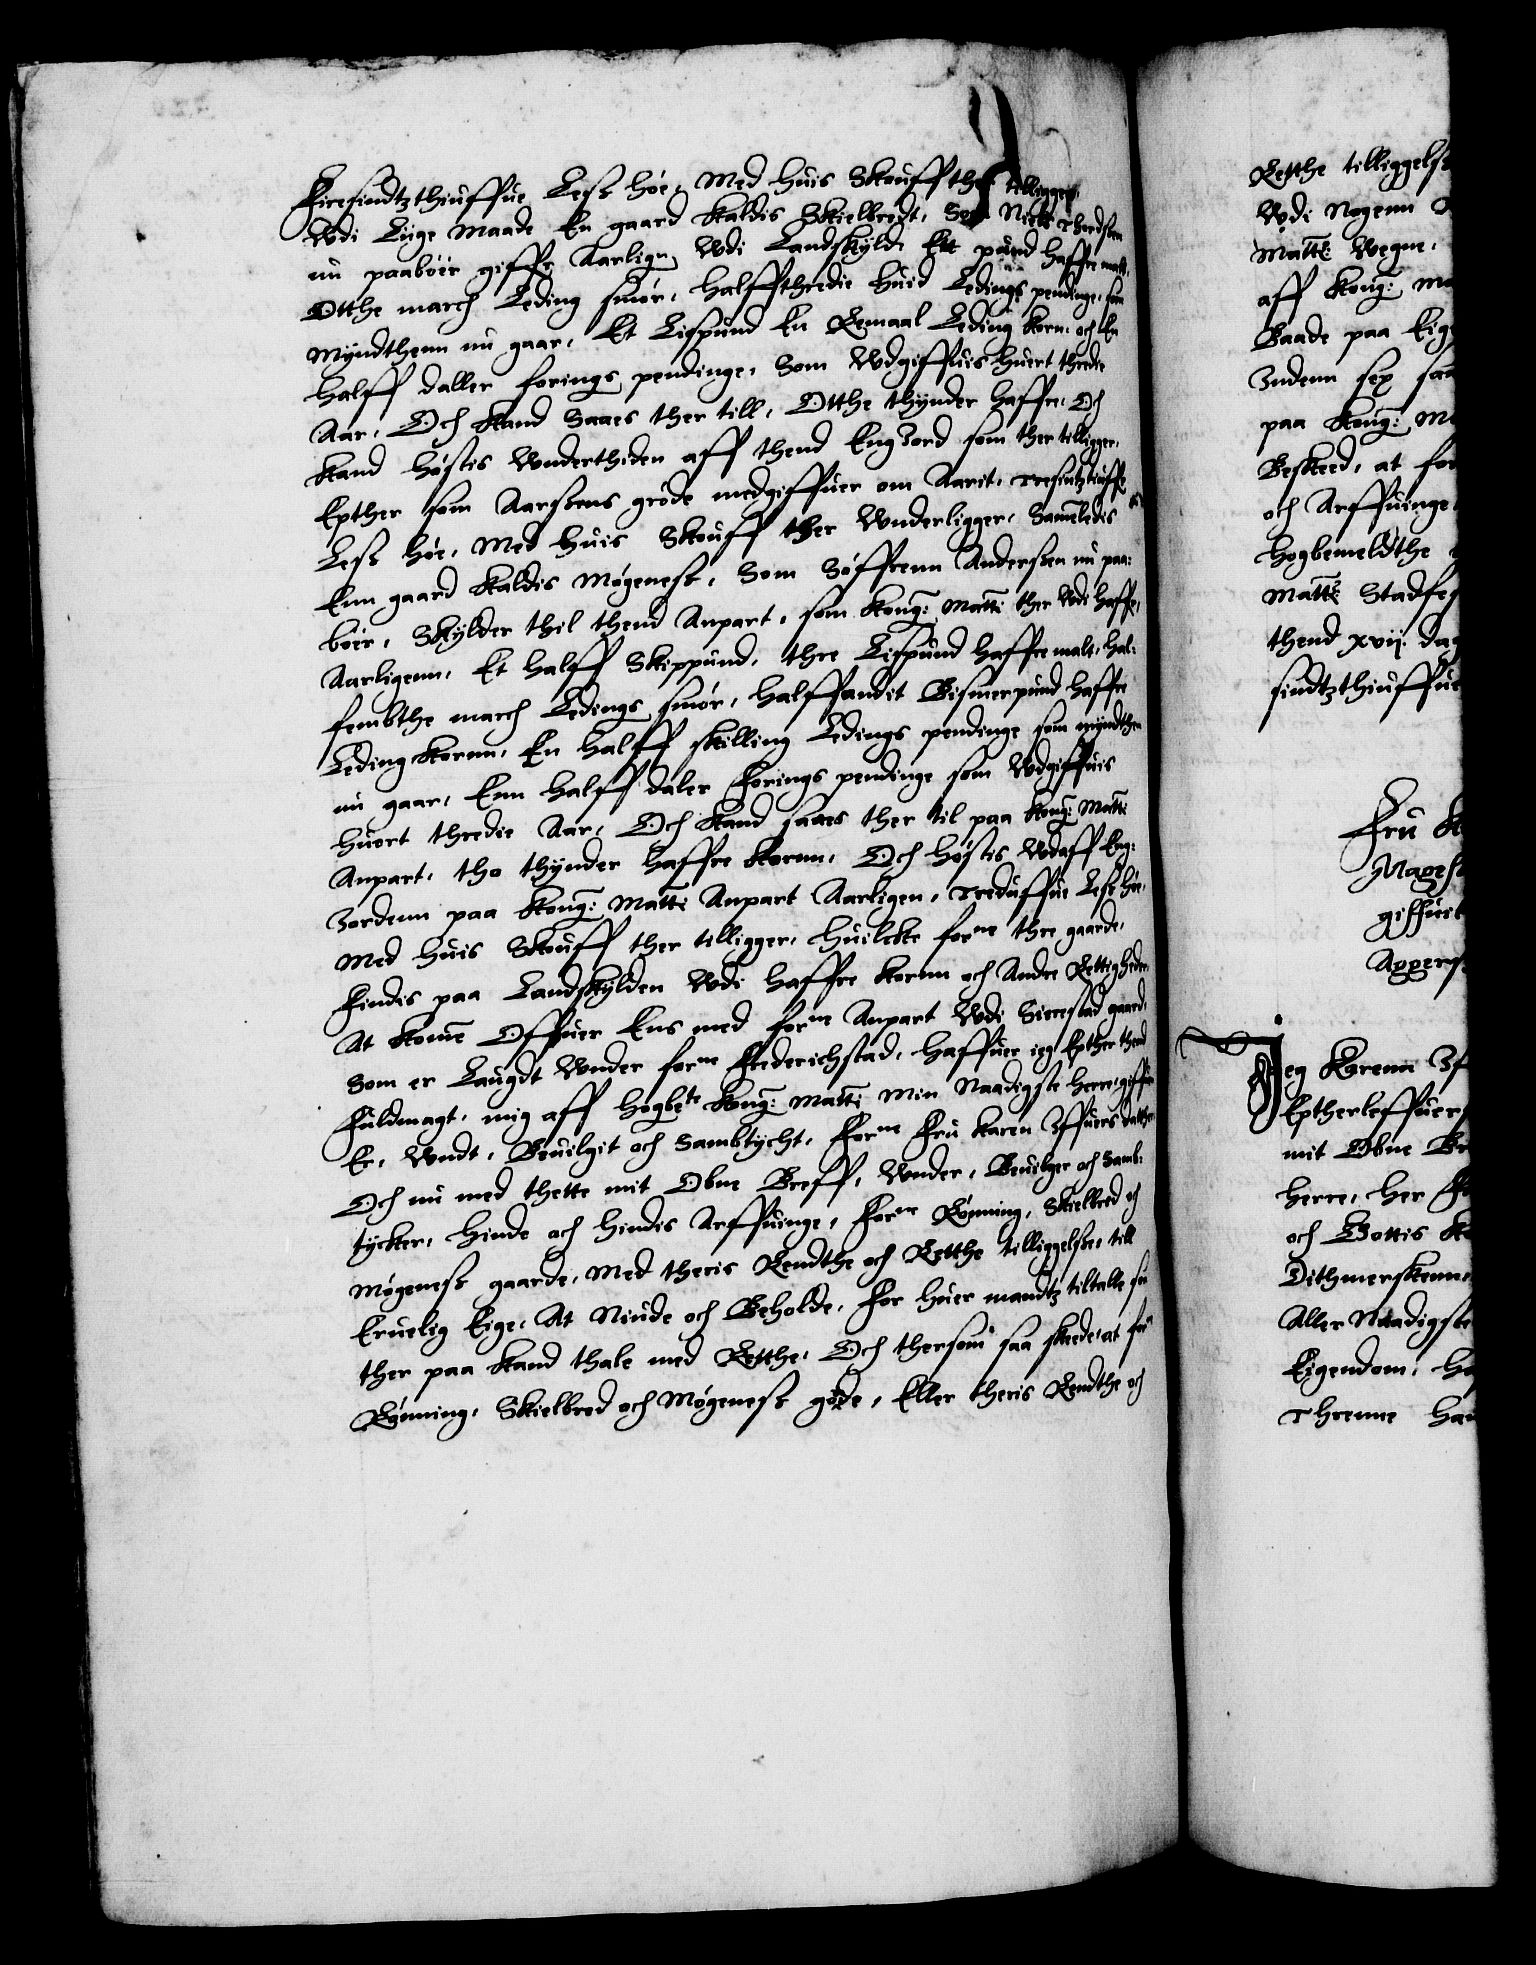 Firesindtzthiuffue Less høe, Med huis Skouff ther tilligger,
Wdi Liige Maade En gaard kaldis Skielbredt, Som Niels Thordssen
nu paaboer giffr Aarlign Wdi Landskyld Ett pund haffre malt,
Otthe march Leding smør, halffthredie huid Ledings pendinge, som
Myndthenn nu gaar, Et Lispund En Remaal Leding korn, och En
halff daller forings pendinge, Som Wdgiffuis huert thredie
Aar, Och kand Saaes ther till, Otthe thynder haffre, Och
kand høstis Wnderthiden aff thend Eng Jord som ther tilligger,
Epther som Aarsens grøde medgiffuer om Aarit, Tresintztiuffe
Less høe, Med huis Skouff ther Wnderligger, Sameledis
Enn gaard kaldis Møgeness, Som Søffrenn Anderssen nu paa:
boer, Skylder thil thend Anpart, som Kong: Matti ther Wdi haffr,
Aarligenn, Et halff Skippund, thre Lispund haffre malt, hal:
fembthe march Ledings smør, halffandit Bismerpund haffre
Leding kornn, En halff skilling Ledings pendinge som myndthen
nu gaar, Enn halff daler Forings pendinge som Wdgiffuis
huort thredie Aar, Och kand saaes ther til paa Kong: Matti
Anpart, tho thynder haffre kornn, Och høstis Wdaff Eng:
Jordenn paa Kong: Matti Anpart Aarligen, Treduffue Less høe,
Med huis Skouff ther tilligger, huilcke forne thre gaarde,
Findis paa Landskylden Wdi haffre kornn och Andre Rettigheder,
At kome Offuer Ens med forne Anpart Wdi Sierestad gaard,
Som er Laugdt Wnder forne Frederichstad, haffuer ieg Epther thend
Fuldmagt, mig aff högbete Kong: Matti Min Naadigste herre, giffr
Er, Wndt, Beuilgit och Sambtycht, Forne Fru Karen Iffuers datter
Och nu med thette mit Obne Breff, Wnder, Beuilger och Samb:
tycker, hinde och hindis Arffuinge, Forne Rønning, Skielbred och
Møgeness gaarde, Med theris Rendthe och Retthe tilliggelsse, till
Eruelig Eige, At Niude och Beholde, For huer mandtz tiltalle som
ther paa kand thale med Retthe, Och thersom saa skede, at for:ne
Rønning, Skielbred och Møgeness gorde, Eller theris Rendthe och
Retthe tilliggels
Wdi Nogenn
Matts: Wegne,
aff Kong: Ma
Baade paa Eig
Indenn sex
paa Kong: Ma
Beskeed, at for
och Arffuinge
Hogbemeldthe
Matts Stadfes
thend xvij dag
sindtzthiuffue
Fru K
Magest
giffuit
Aggers
Jeg Karenn If
Eptherleffuers
mit Obne Br
herre, her Fr
och Gottis Ko
Dithmerskenn
Aller Naadigste
Eigendom, ha
Threnne Ha